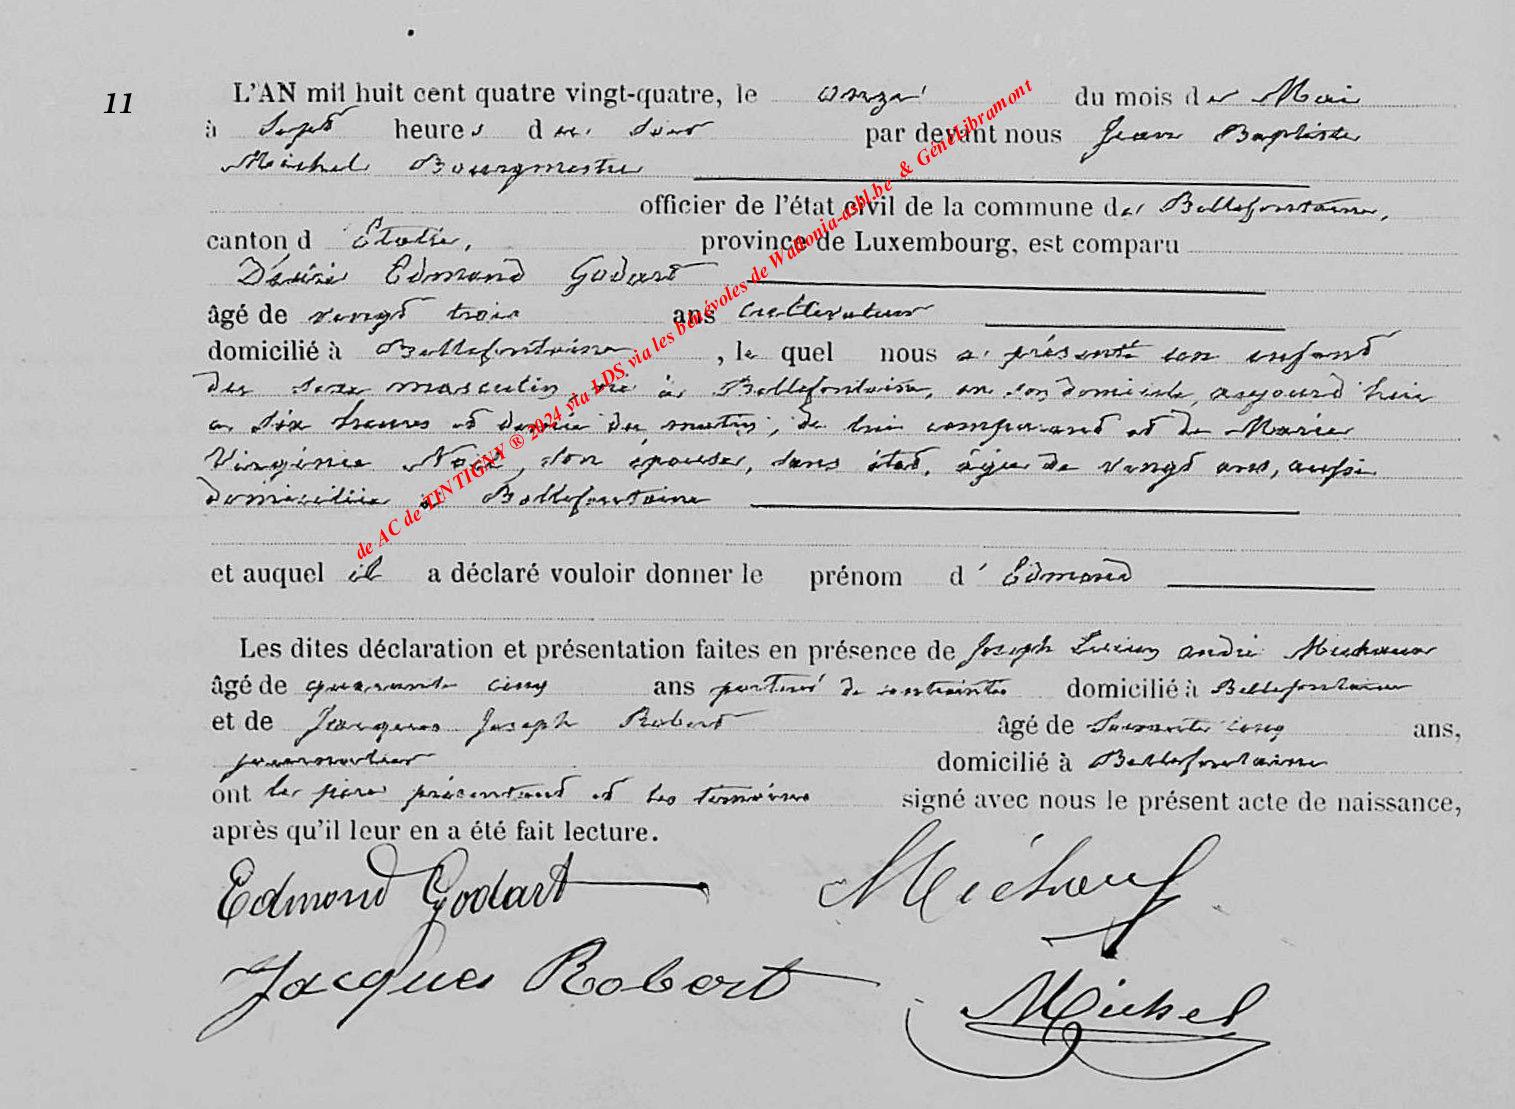 11
L'AN mil huit cent quatre vingt-quatre, le onze du mois de Mai
à Sept heures du soir par devant nous Jean Baptiste
Michel Bourgmestre
officier de l'état civil de la commune de Bellefontaine,
canton d'Etalle, province de Luxembourg, est comparu
Désiré Edmond Godart
âgé de vingt trois ans cultivateur
domicilié à Bellefontaine, lequel nous a présenté un enfant
du sexe masculin, né à Bellefontaine, en son domicile, aujourd'hui
à six heures et demie du matin, de lui comparant et de Marie
Virginie Noël, son épouse, sans état, âgée de vingt ans, aussi
domiciliée à Bellefontaine
et auquel il a déclaré vouloir donner le prénom d'Edmond
Les dites déclaration et présentation faites en présence de Joseph Lucien André Michaux
âgé de quarante cinq ans porteur de contraintes domicilié à Bellefontaine
et de Jacques Joseph Robert âgé de Soixante cinq ans,
journalier domicilié à Bellefontaine
ont les père présentant et les témoins signé avec nous le présent acte de naissance,
après qu'il leur en a été fait lecture.
Edmond Godart Michaux
Jacques Robert Michel
de AC de TINTIGNY ® 2024 via LDS via les bénévoles de Wallonia-asbl.be & GénéLibramont